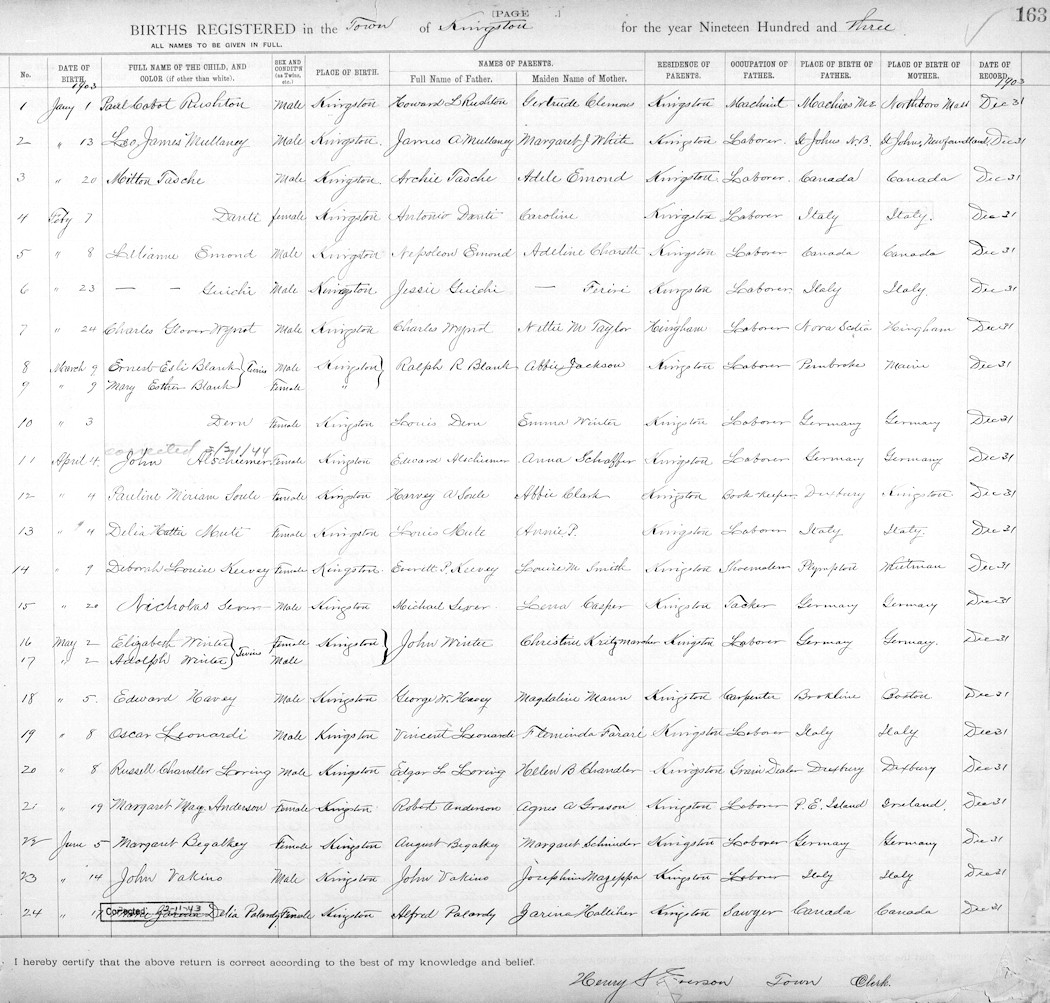 [PAGE 163
BIRTHS REGISTERED in the Town of Kingston for the year Nineteen Hundred and three
ALL NAMES TO BE GIVEN IN FULL.
No. DATE OF BIRTH. 1903 FULL NAME OF THE CHILD, AND COLOR (if other than white). SEX AND CONDIT'N (as Twins, etc.) PLACE OF BIRTH. NAMES OF PARENTS. Full Name of Father. Maiden Name of Mother. RESIDENCE OF PARENTS. OCCUPATION OF FATHER. PLACE OF BIRTH OF FATHER. PLACE OF BIRTH OF MOTHER. DATE OF RECORD. 1903
1 Jany 1 Paul Cabot Rushton Male Kingston Howard L Rushton Gertrude Clemons Kingston Machinist Machias Me Northboro Mass Dec 31
2 " 13 Leo James Mullaney Male Kingston. James A Mullaney Margaret J White Kingston Laborer. St Johns N.B. St Johns, Newfoundland, Dec 31
3 " 20 Milton Tasche Male Kingston. Archie Tasche Adele Emond Kingston Laborer. Canada Canada Dec 31
4 Feby 7 Danti female Kingston Antonio Danti Caroline Kingston Laborer Italy Italy. Dec 31
5 " 8 Lilianne Emond Male Kingston Nepoleon Emond Adeline Kingston Laborer Canada Canada Dec 31
6 " 23 — — Guichi Male Kingston Jessie Guichi — Kingston Laborer Italy Italy. Dec 31
7 " 24 Charles Glover Wynot Male Kingston Charles Wynot Nettie M Taylor Hingham Laborer Nova Scotia Hingham Dec 31
8 March 9 Ernest Esli Blank Twins Male Kingston Ralph R Blank Abbie Jackson Kingston Laborer Pembroke Maine Dec 31
9 " 9 Mary Esther Blank Female "
10 " 3 Dern Female Kingston Louis Dern Emma Winter Kingston Laborer Germany Germany Dec 31
corrected 2/21/44
11 April 4. John Alscheimer Female Kingston Edward Alscheimer Anna Schaffer Kingston Laborer Germany Germany Dec 31
12 " 4 Pauline Miriam Soule Female Kingston Harvey A Soule Abbie Clark Kingston Duxbury Kingston Dec 31
13 " 4 Delia Hattie Muti Female Kingston Louis Kingston Laborer Italy Italy. Dec 31
14 " 9 Deborah Louise Keevey Female Kingston Everett P. Keevey Louise M Smith Kingston Plympton Whitman Dec 31
15 " 20 Nicholas Sever Male Kingston Michael Sever Lena Casper Kingston Tacker Germany Germany Dec 31
16 May 2 Elizabeth Winter Twins Female Kingston John Winter Christine Kritzmarcher Kingston Laborer Germany Germany. Dec 31
17 " 2 Adolph Winter Male
18 " 5. Edward Havey Male Kingston George W. Havey Magdaline Mann Kingston Carpenter Brokline Boston Dec 31
19 " 8 Oscar Leonardi Male Kingston Vincent Leonardi Fleminda Farari Kingston Laborer Italy Italy Dec 31
20 " 8 Russell Chandler Loring Male Kingston Edgar L Loring Hellen B Chandler Kingston Grain Dealer Duxbury Duxbury Dec 31
21 " 19 Margaret May Anderson Female Kingston Robert Anderson Agnes A Grason Kingston Laborer P. E. Island Ireland. Dec 31
22 June 5 Margaret Begalkey Female Kingston August Begalkey Margaret Schnider Kingston Laborer Germany Germany Dec 31
23 " 14 John Vakino Male Kingston John Vakino Josephine Mazeppa Kingston Laborer Italy Italy Dec 31
24 " 17 Corrected 12-11-43 Delia Palardy Female Kingston Alfred Palardy Zarina Halliher Kingston Sawyer Canada Canada Dec 31
I hereby certify that the above return is correct according to the best of my knowledge and belief.
Henry Town Clerk.